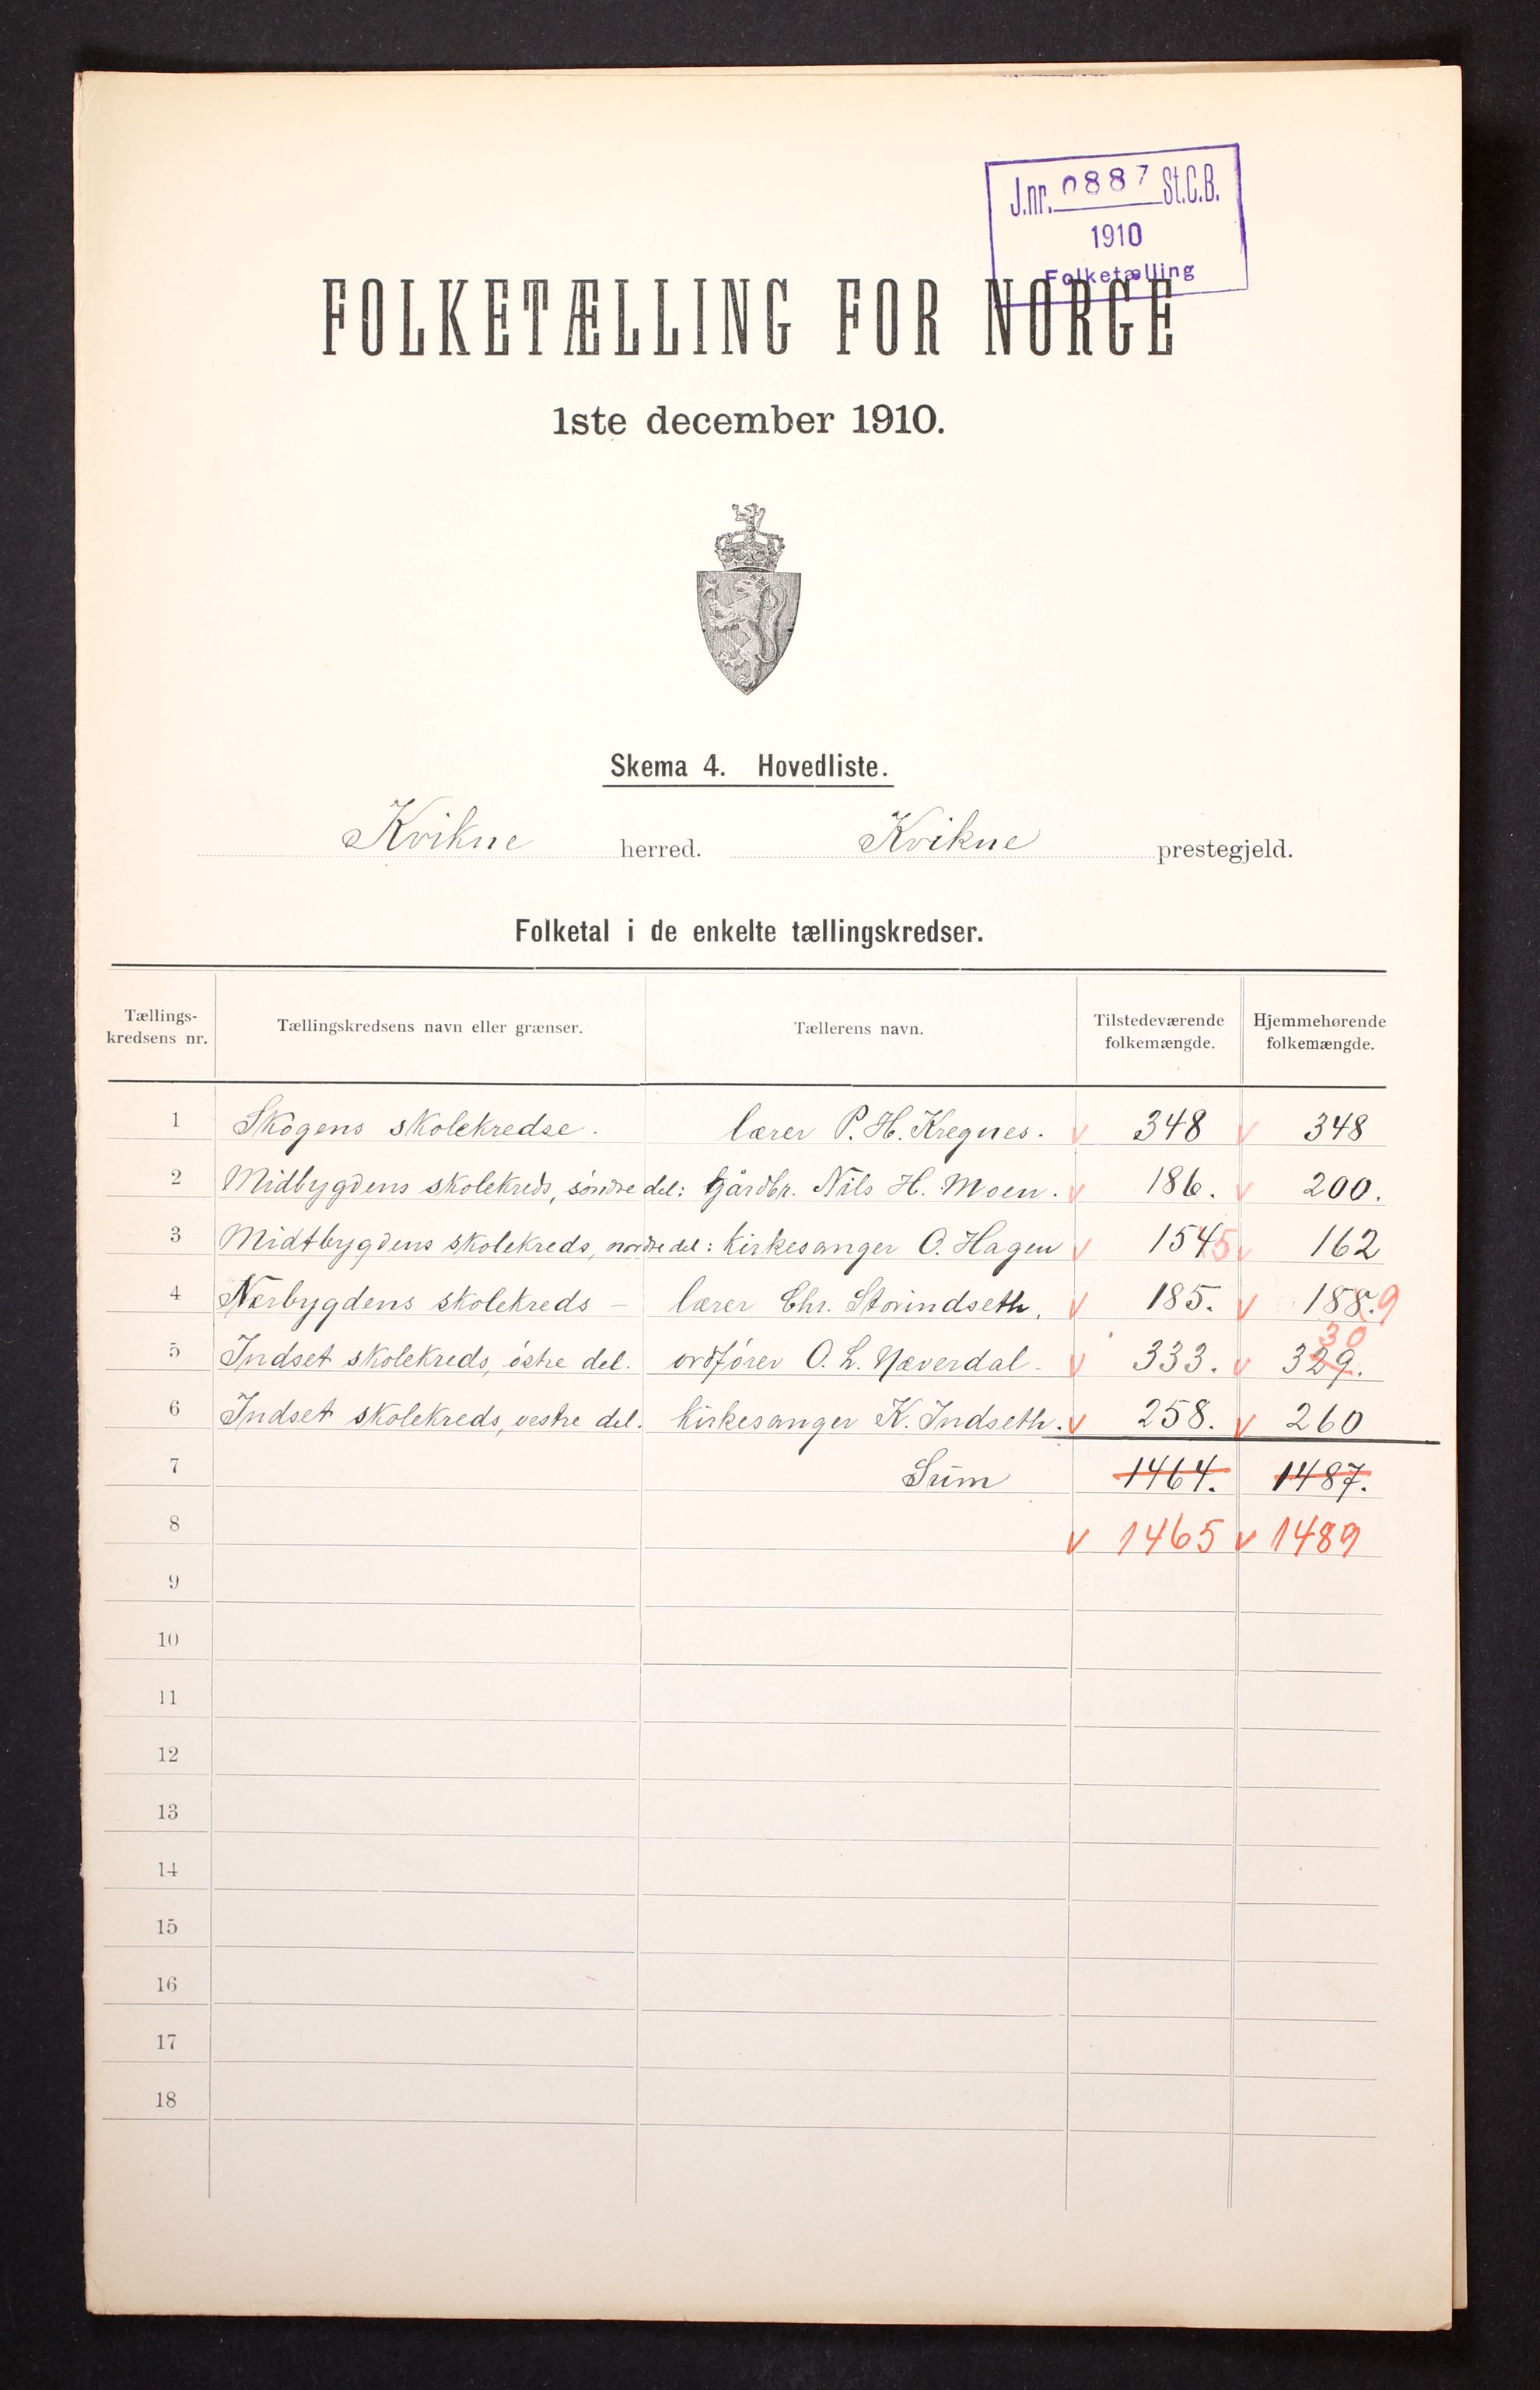 J.nr. 0887 St.C.B.
1910
Folketælling
FOLKETÆLLING FOR NORGE
1ste december 1910.
Skema 4. Hovedliste.
Kvikne herred. Kvikne prestegjeld.
Folketal i de enkelte tællingskredser.
Tællings-kredsens nr. Tællingskredsens navn eller grænser. Tællerens navn. Tilstedeværende folkemængde. Hjemmehørende folkemængde.
1 Skogens skolekredse. lærer P. H. Kregnes. v 348 v 348
2 Midbygdens skolekreds, søndre del: Gårdbr. Nils H. Moen. v 186. v 200.
3 Midtbygdens skolekreds, nordre del: kirkesanger O. Hagen v 154 5 v 162
4 Nærbygdens skolekreds – lærer Chr. Storindseth. v 185. v 188. 9
30
5 Indset skolekreds, østre del. ordfører O. L. Næverdal - v 333. v 329.
6 Indset skolekreds, vestre del. kirkesanger K. Indseth. v 258. v 260
7 Sum 1464. 1487.
8 v 1465 v 1489
9
10
11
12
13
14
15
16
17
18